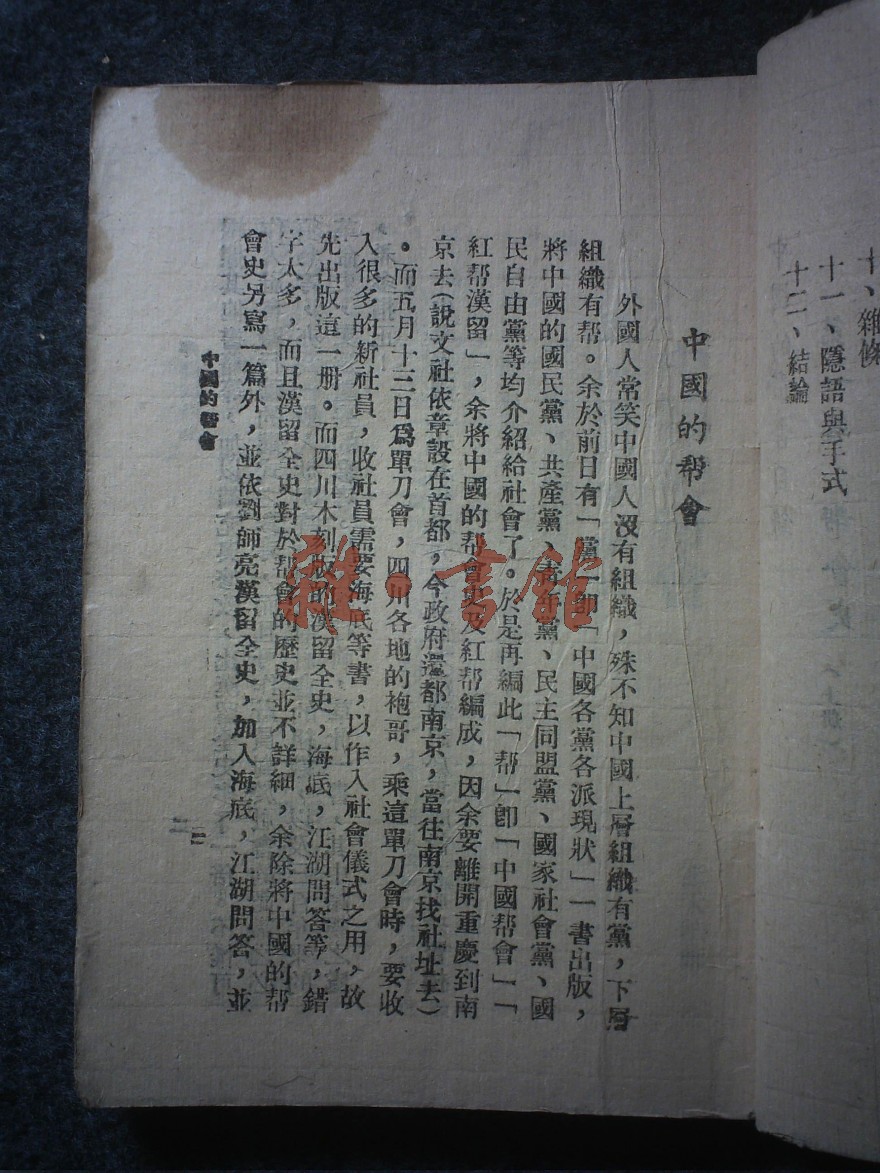 十、雜條
十一、隱語與手式
十二、結論
中國的帮會
外國人常笑中國人沒有組織，殊不知中國上層組織有黨，下層
組織有帮。余於前日有「黨」卽「中國各黨各派現狀」一書出版，
將中國的國民黨、共產黨、青年黨、民主同盟黨、國家社會黨、國
民自由黨等均介紹給社會了。於是再編此「帮」卽「中國帮會」一「
紅帮漢留」，余將中國的帮會史及紅帮編成，因余要離開重慶到南
京去（說文社依章設在首都，今政府還都南京，當往南京找社址去）
。而五月十三日爲單刀會，四川各地的袍哥，乘這單刀會時，要收
入很多的新社員，收社員需要海底等書，以作入社會儀式之用，故
先出版這一册。而四川木刻版的漢留全史，海底，江湖問答等，錯
字太多，而且漢留全史對於帮會的歷史並不詳細，余除將中國的帮
會史另寫一篇外，並依劉師亮漢留全史，加入海底，江湖問答，並
中國的帮會
一
書館